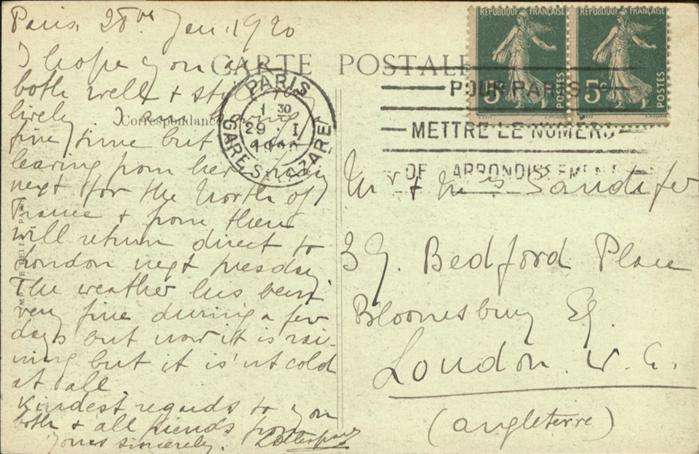 Paris 28th Jan. 1920
I hope you are
both well & still
lively. I am having
fine time but
leaving from here
next for the North of
France & from there
will return direct to
London next
The weather has been
very fine during a few
days but now it is rai-
ning but it is'nt cold
at all.
Kindest regards to you
both & all friends from
yours sincerely.
CARTE POSTALE
Correspondance
PARIS
1 30
29 I
GARE ST LAZARE
POUR PARIS
METTRE LE NUMERO
DE ARRONDISSEMENT
REPUBLIQUE FRANCAISE
5c POSTES
REPUBLIQUE FRANCAISE
5c POSTES
Mr & Mrs Sandifer
39. Bedford Place
Bloomsbury Sq.
London. W. C.
(Angleterre)